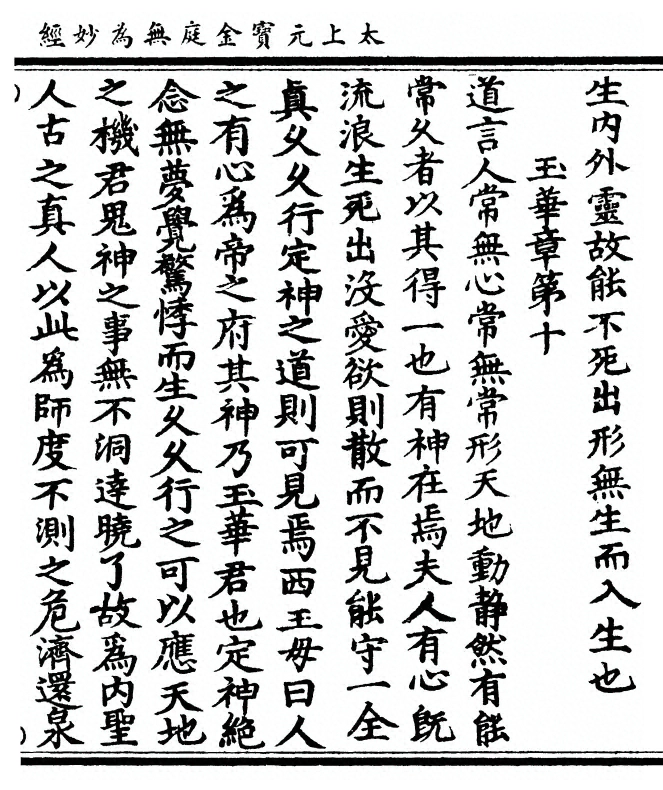 太上元寶金庭無為妙經
生內外靈故能不死出形無生而入生也
玉華章第十
道言人常無心常無常形天地動靜然有能
常久者以其得一也有神在焉夫人有心既
流浪生死出沒愛欲則散而不見能守一全
真久久行定神之道則可見焉西王毋曰人
之有心為帝之府其神乃玉華君也定神絕
念無夢覺驚悸而生久久行之可以應天地
之機君鬼神之事無不洞達曉了故為內聖
人古之真人以此為師度不測之危濟還泉